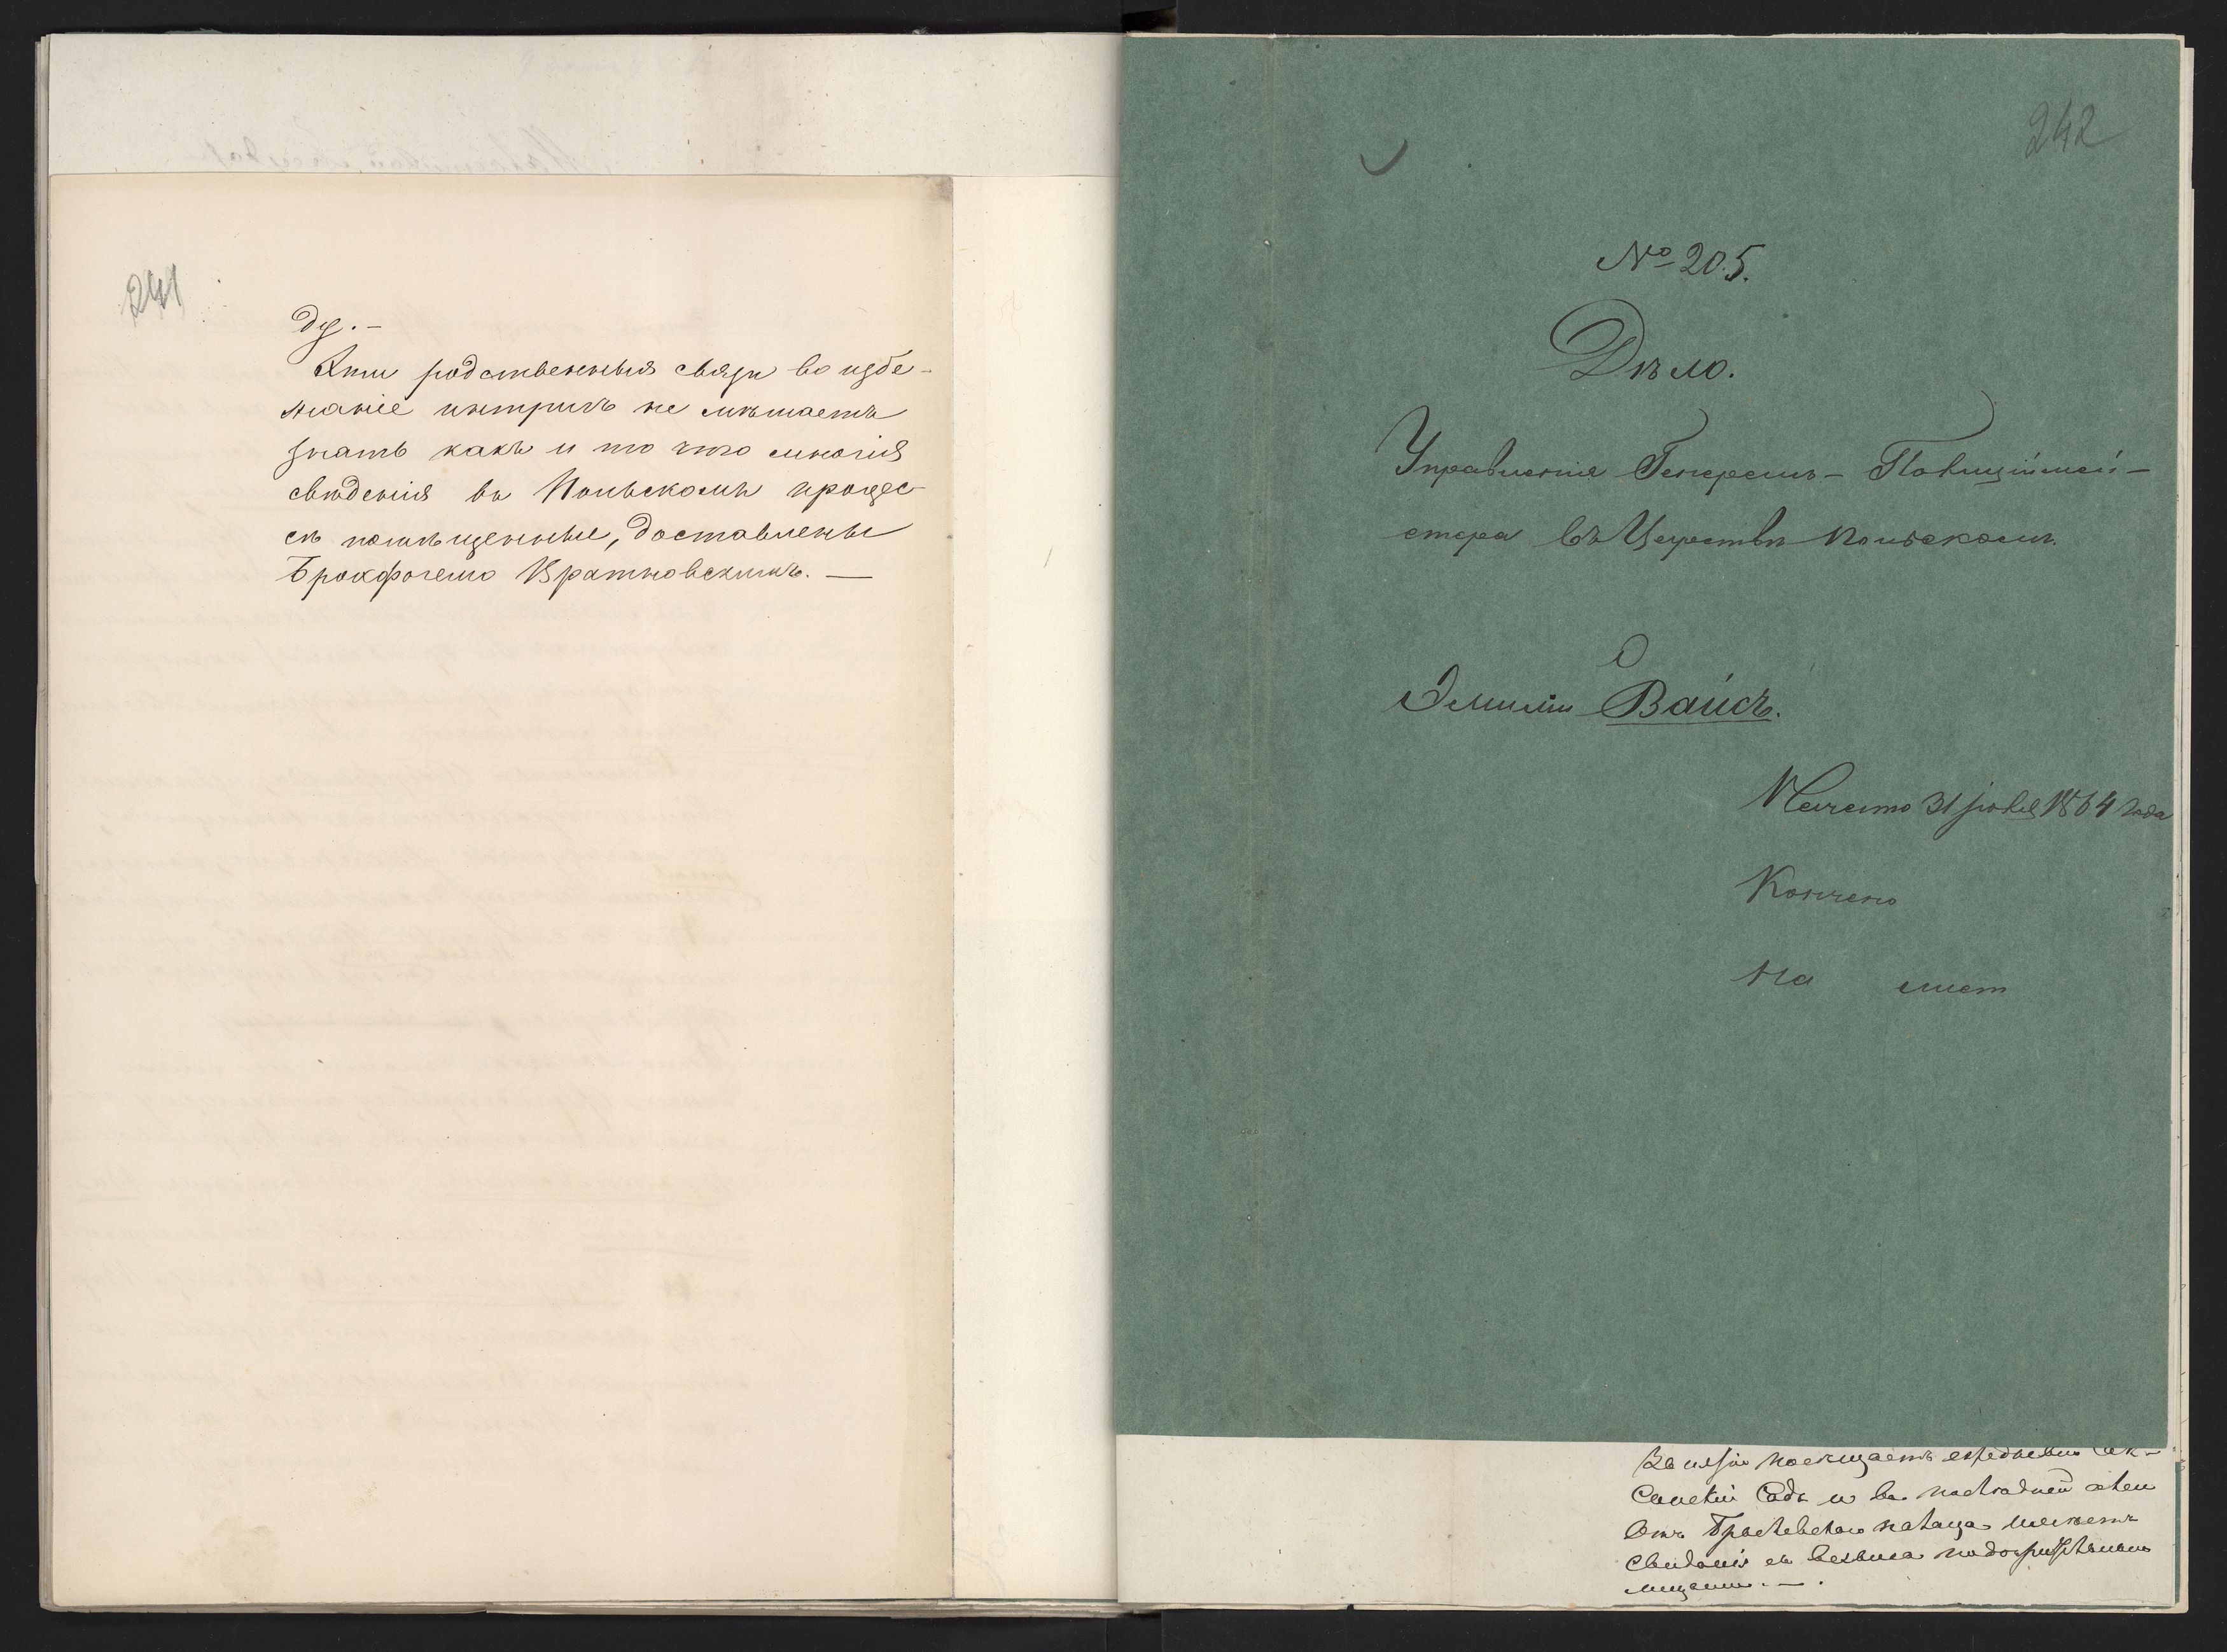 241
ду. —
Эти родственныя связи во избе-
жаніе интригъ не мѣшаетъ
знать какъ и то что многія
свѣдѣнія въ Польскомъ процес-
сѣ помѣщенные, доставлены
Брокгочемо Кратновскимъ. —
242
№ 205.
Дѣло.
Управленія Генералъ-Полицiймей-
стера въ Царствѣ Польскомъ.
О
Эмиліи Вайсъ.
Начато 31 1864 года
Кончено
На лист
посѣщаетъ ежедневно Сак-
сонскій Садъ и въ послѣдней аллеи
отъ дворца имѣетъ
свиданія съ весьма подозрительными
лицами. —.